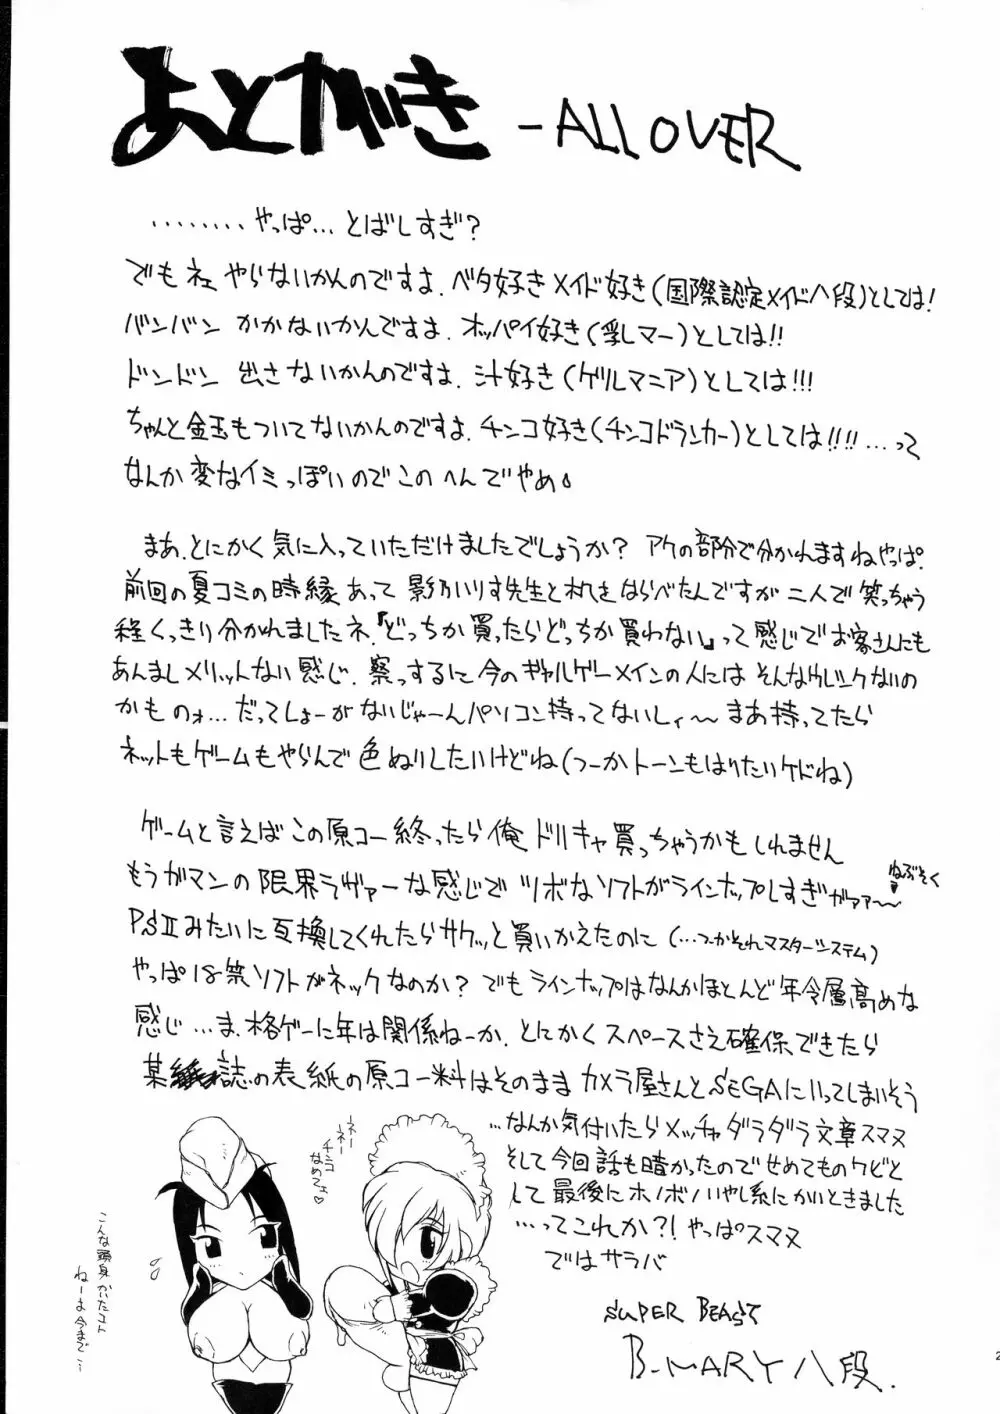 あとがき -ALL OVER
‥‥‥‥やっぱ…とばしすぎ?
でもネェ やらないかんのですよ.ベタ好きメイド好き(国際認定メイド八段)としては!
バンバン かかないかんですよ.オッパイ好き(乳レマー)としては!!
ドンドン 出さないかんのですよ.汁好き(ゲリルマニア)としては!!!
ちゃんと金玉もついてないかんのですよ.チンコ好き(チンコドランカー)としては!!!!…って
なんか変なイミっぽいのでこのへんでやめ。
まあ、とにかく気に入っていただけましたでしょうか? アケの部分で分かれますねやっぱ.
前回の夏コミの時縁あって 影乃いりす先生と机をならべたんですが二人で笑っちゃう
程くっきり分かれましたネ.『どっちか買ったらどっちか買わない』って感じでお客さんにも
あんましメリットない感じ.察っするに今のギャルゲーメインの人にはそんなにリンクないの
かものォ…だってしょーがないじゃーんパソコン持ってないしィ〜まあ持ってたら
ネットもゲームもやらんで色ぬりしたいけどね(つーかトーンもはりたいケドね)
ゲームと言えばこの原コー終ったら俺ドリキャ買っちゃうかもしれません
もうガマンの限界ラヴァーな感じでツボなソフトがラインナップしすぎガァァ〜
ねぶそく
PSⅡみたいに互換してくれたらサクッと買いかえたのに(…つーかそれマスターシステム)
やっぱ18禁ソフトがネックなのか? でもラインナップはなんかほとんど年令層高めな
感じ…ま、格ゲーに年は関係ねーか.とにかくスペースさえ確保できたら
某 誌の表紙の原コー料はそのままカメラ屋さんとSEGAにいってしまいそう
…なんか気付いたらメッチャダラダラ文章スマヌ
そして今回話も暗かったのでせめてものケビと
して最後にホノボノいやし系にかいときました
…ってこれか?!やっぱスマヌ
ではサラバ
ネー
ネー
チンコ
なめてェ♡
こんな頭身かいたコト
ねーよ今まで…
SUPER BEAST
B-MARY 八段.
2